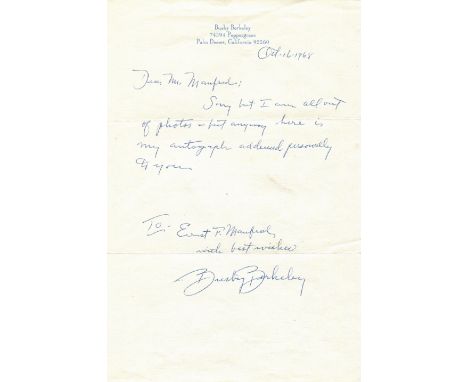 Busby Berkeley
74594 Peppergrass
Palm Desert, California 92260
Oct-16-1968
Dear Mr. Manfred:
Sorry but I am all out
of photos - but anyway here is
my autograph addressed personally
to you.
To:- Ernst F. Manfred,
with best wishes
Busby Berkeley